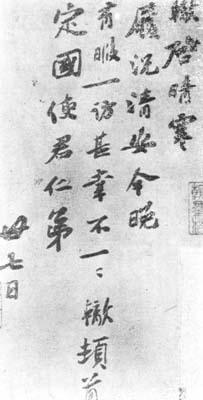 轍啓晴寒
履況清安今晚
有暇一訪甚幸不一一轍頓首
定國使君仁弟
廿七日